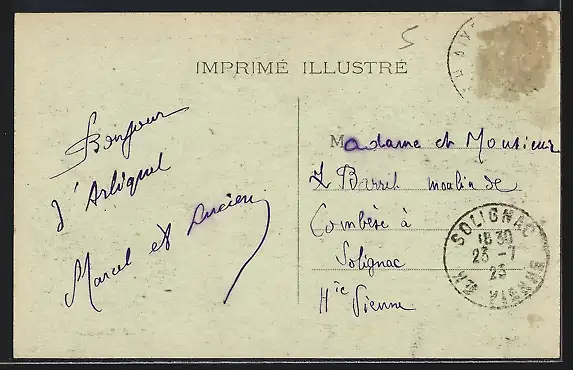 5
IMPRIMÉ ILLUSTRÉ
Bonjour
d'
Marcel et Lucien
Madame et Monsieur
Barret moulin de
Combèse à
Solignac
Hte Vienne
SOLIGNAC
18 30
23 - 7
23
HTE VIENNE